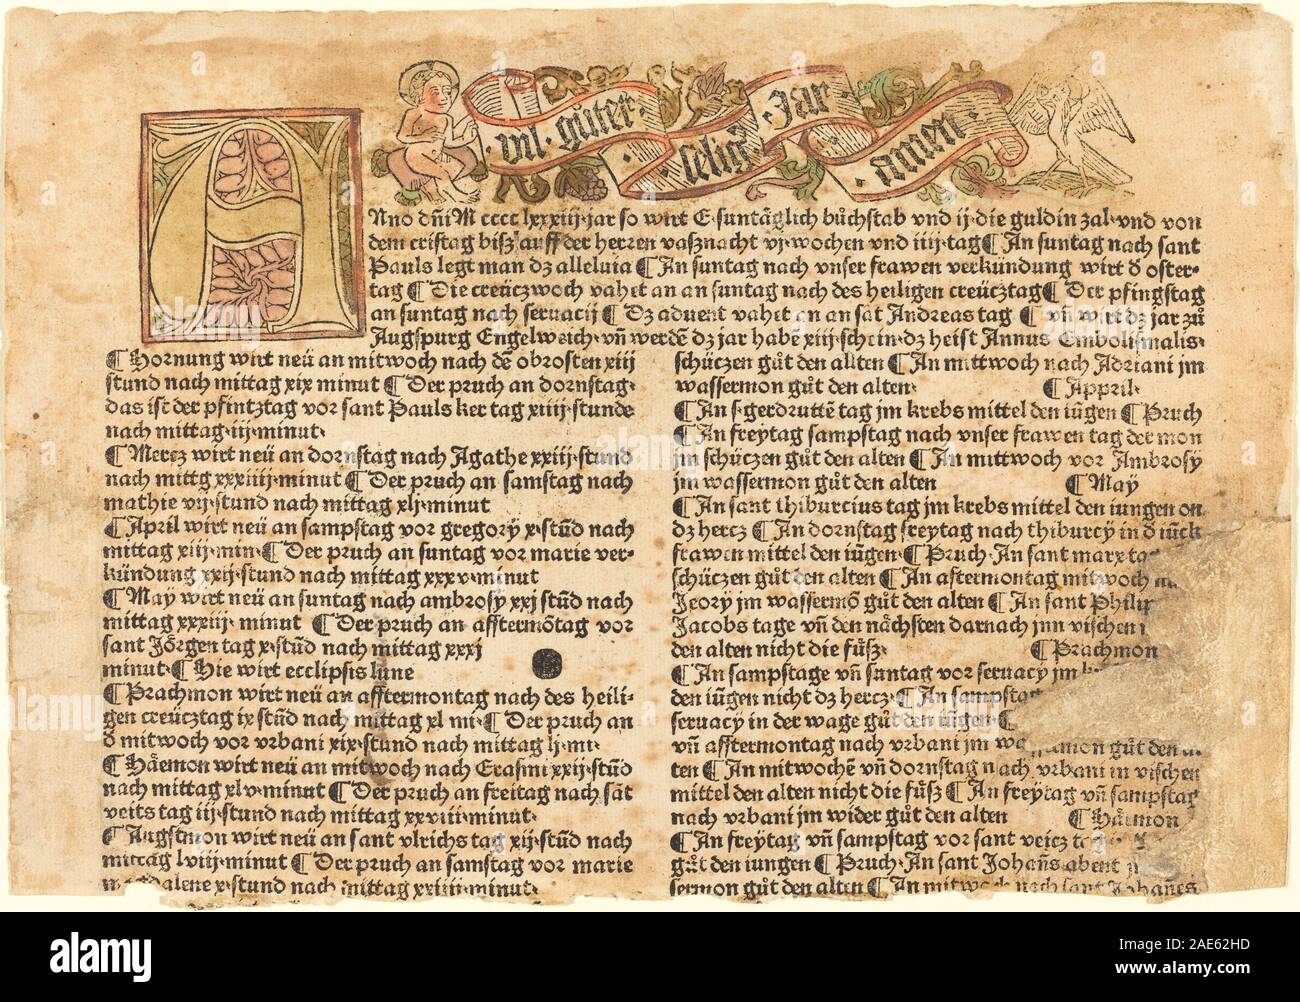 vil · gůter · selig · Jar · amen ·
ANno dñi M cccc lxxxiij · jar so wirt E · suntäglich bůchstab vnd ij · die guldin zal · vnd von
dem cristag bisz auff der herren vasznacht vj · wochen vnd iiij · tag ¶ An suntag nach sant
Pauls legt man dz alleluia ¶ An suntag nach vnser frawen verkündung wirt d oster-
tag ¶ Die creüczwoch vahet an an suntag nach des heiligen creücztag ¶ Der pfingstag
an suntag nach seruacij ¶ Dz aduent vahet an an sāt Andreas tag ¶ vñ wirt dz jar zů
Augspurg Engelweich · vñ werdē dz jar habē xiij · schein · dz heist Annus Embolismalis ·
¶ Hornung wirt neü an mitwoch nach dē obrosten xiij
stund nach mittag xix minut ¶ Der pruch an dornstag ·
das ist der pfintztag vor sant Pauls ker tag xiiij · stunde
nach mittag · iij · minut ·
¶ Mercz wirt neü an dornstag nach Agathe xxiij · stund
nach mittg xxxiiij · minut ¶ Der pruch an samstag nach
mathie vij · stund nach mittag xlj · minut
¶ April wirt neü an sampstag vor gregorÿ x · stūd nach
mittag xiij · min · ¶ Der pruch an suntag vor marie ver-
kündung xxij · stund nach mittag xxxv · minut
¶ Maÿ wirt neü an suntag nach ambrosÿ xxj stūd nach
mittag xxxiij · minut ¶ Der pruch an afftermōtag vor
sant Jörgen tag x · stūd nach mittag xxxj
minut · ¶ Hie wirt ecclipsis lune
¶ Prachmon wirt neü an afftermontag nach des heili-
gen creücztag ix stūd nach mittag xl mi · ¶ Der pruch an
d mitwoch vor vrbani xix · stund nach mittag lj · mi ·
¶ Häemon wirt neü an mitwoch nach Erasmi xxij · stūd
nach mittag xlv · minut ¶ Der pruch an freitag nach sāt
veits tag iij · stund nach mittag xxviii · minut ·
¶ Augstmon wirt neü an sant vlrichs tag xij · stūd nach
mittag lviij · minut ¶ Der pruch an samstag vor marie
magdalene x · stund nach mittag xxiiij · minut ·
schüczen gůt den allten ¶ An mittwoch nach Adriani jm
wassermon gůt den alten · ¶ Appril ·
¶ An s · gerdruttē tag jm krebs mittel den iügen ¶ Pruch
¶ An freÿtag sampstag nach vnser frawen tag der mon
jm schüczen gůt den alten ¶ An mittwoch vor Ambrosÿ
jm wassermon gůt den alten ¶ Maÿ
¶ An sant thiburcius tag jm krebs mittel den iungen on
dz hercz ¶ An dornstag freÿtag nach thiburcÿ in d iūck
frawen mittel den iügen · ¶ Pruch · An sant marx
schüczen gůt den alten ¶ An aftermontag mitwoch
Jeorÿ jm wassermō gůt den alten ¶ An sant
Jacobs tage vñ den nächsten darnach jnn vischen
den alten nicht die füsz · ¶ Prachmon
¶ An sampstage vñ suntag vor seruacÿ jm
den iügen nicht dz hercz · ¶ An
seruacÿ in der wage gůt den iügen · ¶
vñ afftermontag nach vrbani jm gůt den
ten ¶ An mitwochē vñ dornstag nach vrbani in vischen
mittel den alten nicht die füsz ¶ An freÿtag vñ sampstag
nach vrbani jm wider gůt den alten ¶ Häemon
¶ An freÿtag vñ sampstag vor sant veicz
gůt den iungen ¶ Pruch · An sant Johañs abent
sermon gůt den alten ¶ An mitwoch nach sant Johanes
alamy
Image ID: 2AE62HD
www.alamy.com